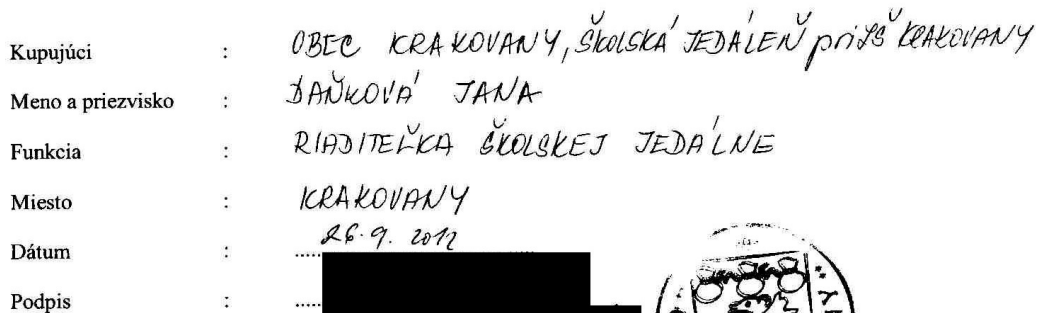 Kupujúci : OBEC KRAKOVANY, ŠKOLSKÁ JEDÁLEŇ pri ZŠ KRAKOVANY
Meno a priezvisko : DAŇKOVÁ JANA
Funkcia : RIADITEĽKA ŠKOLSKEJ JEDÁLNE
Miesto : KRAKOVANY
Dátum : 26.9. 2012
Podpis :